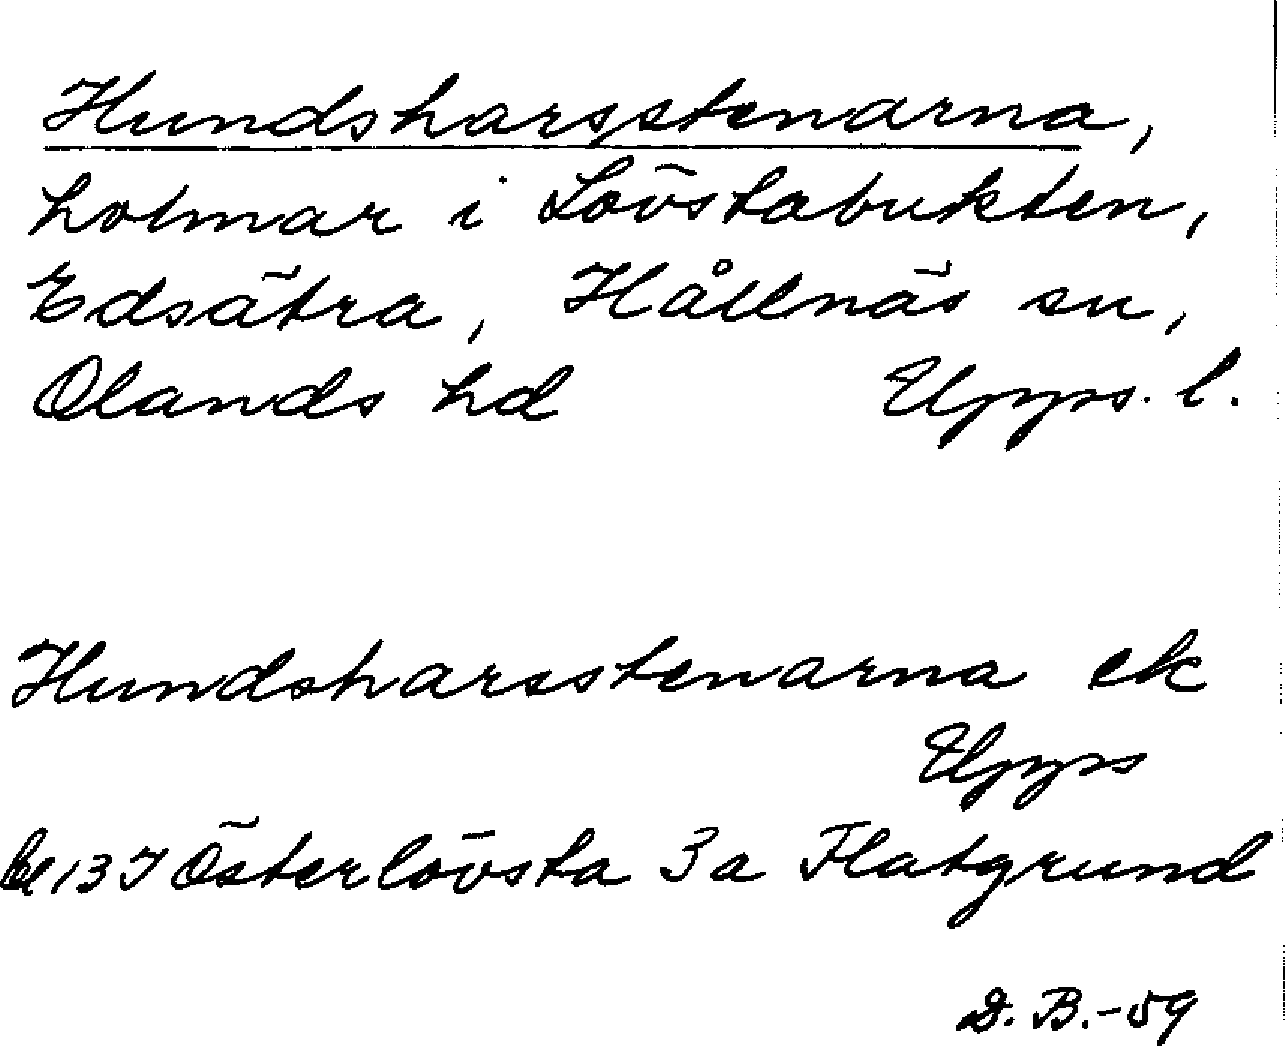 Hundsharsstenarna,
holmar i Lövstabukten,
Edsätra, Hållnäs sn,
Olands hd Upps. l.
Hundsharsstenarna ek
Upps
bl 13 I Österlövsta 3a Flatgrund
D. B. -59